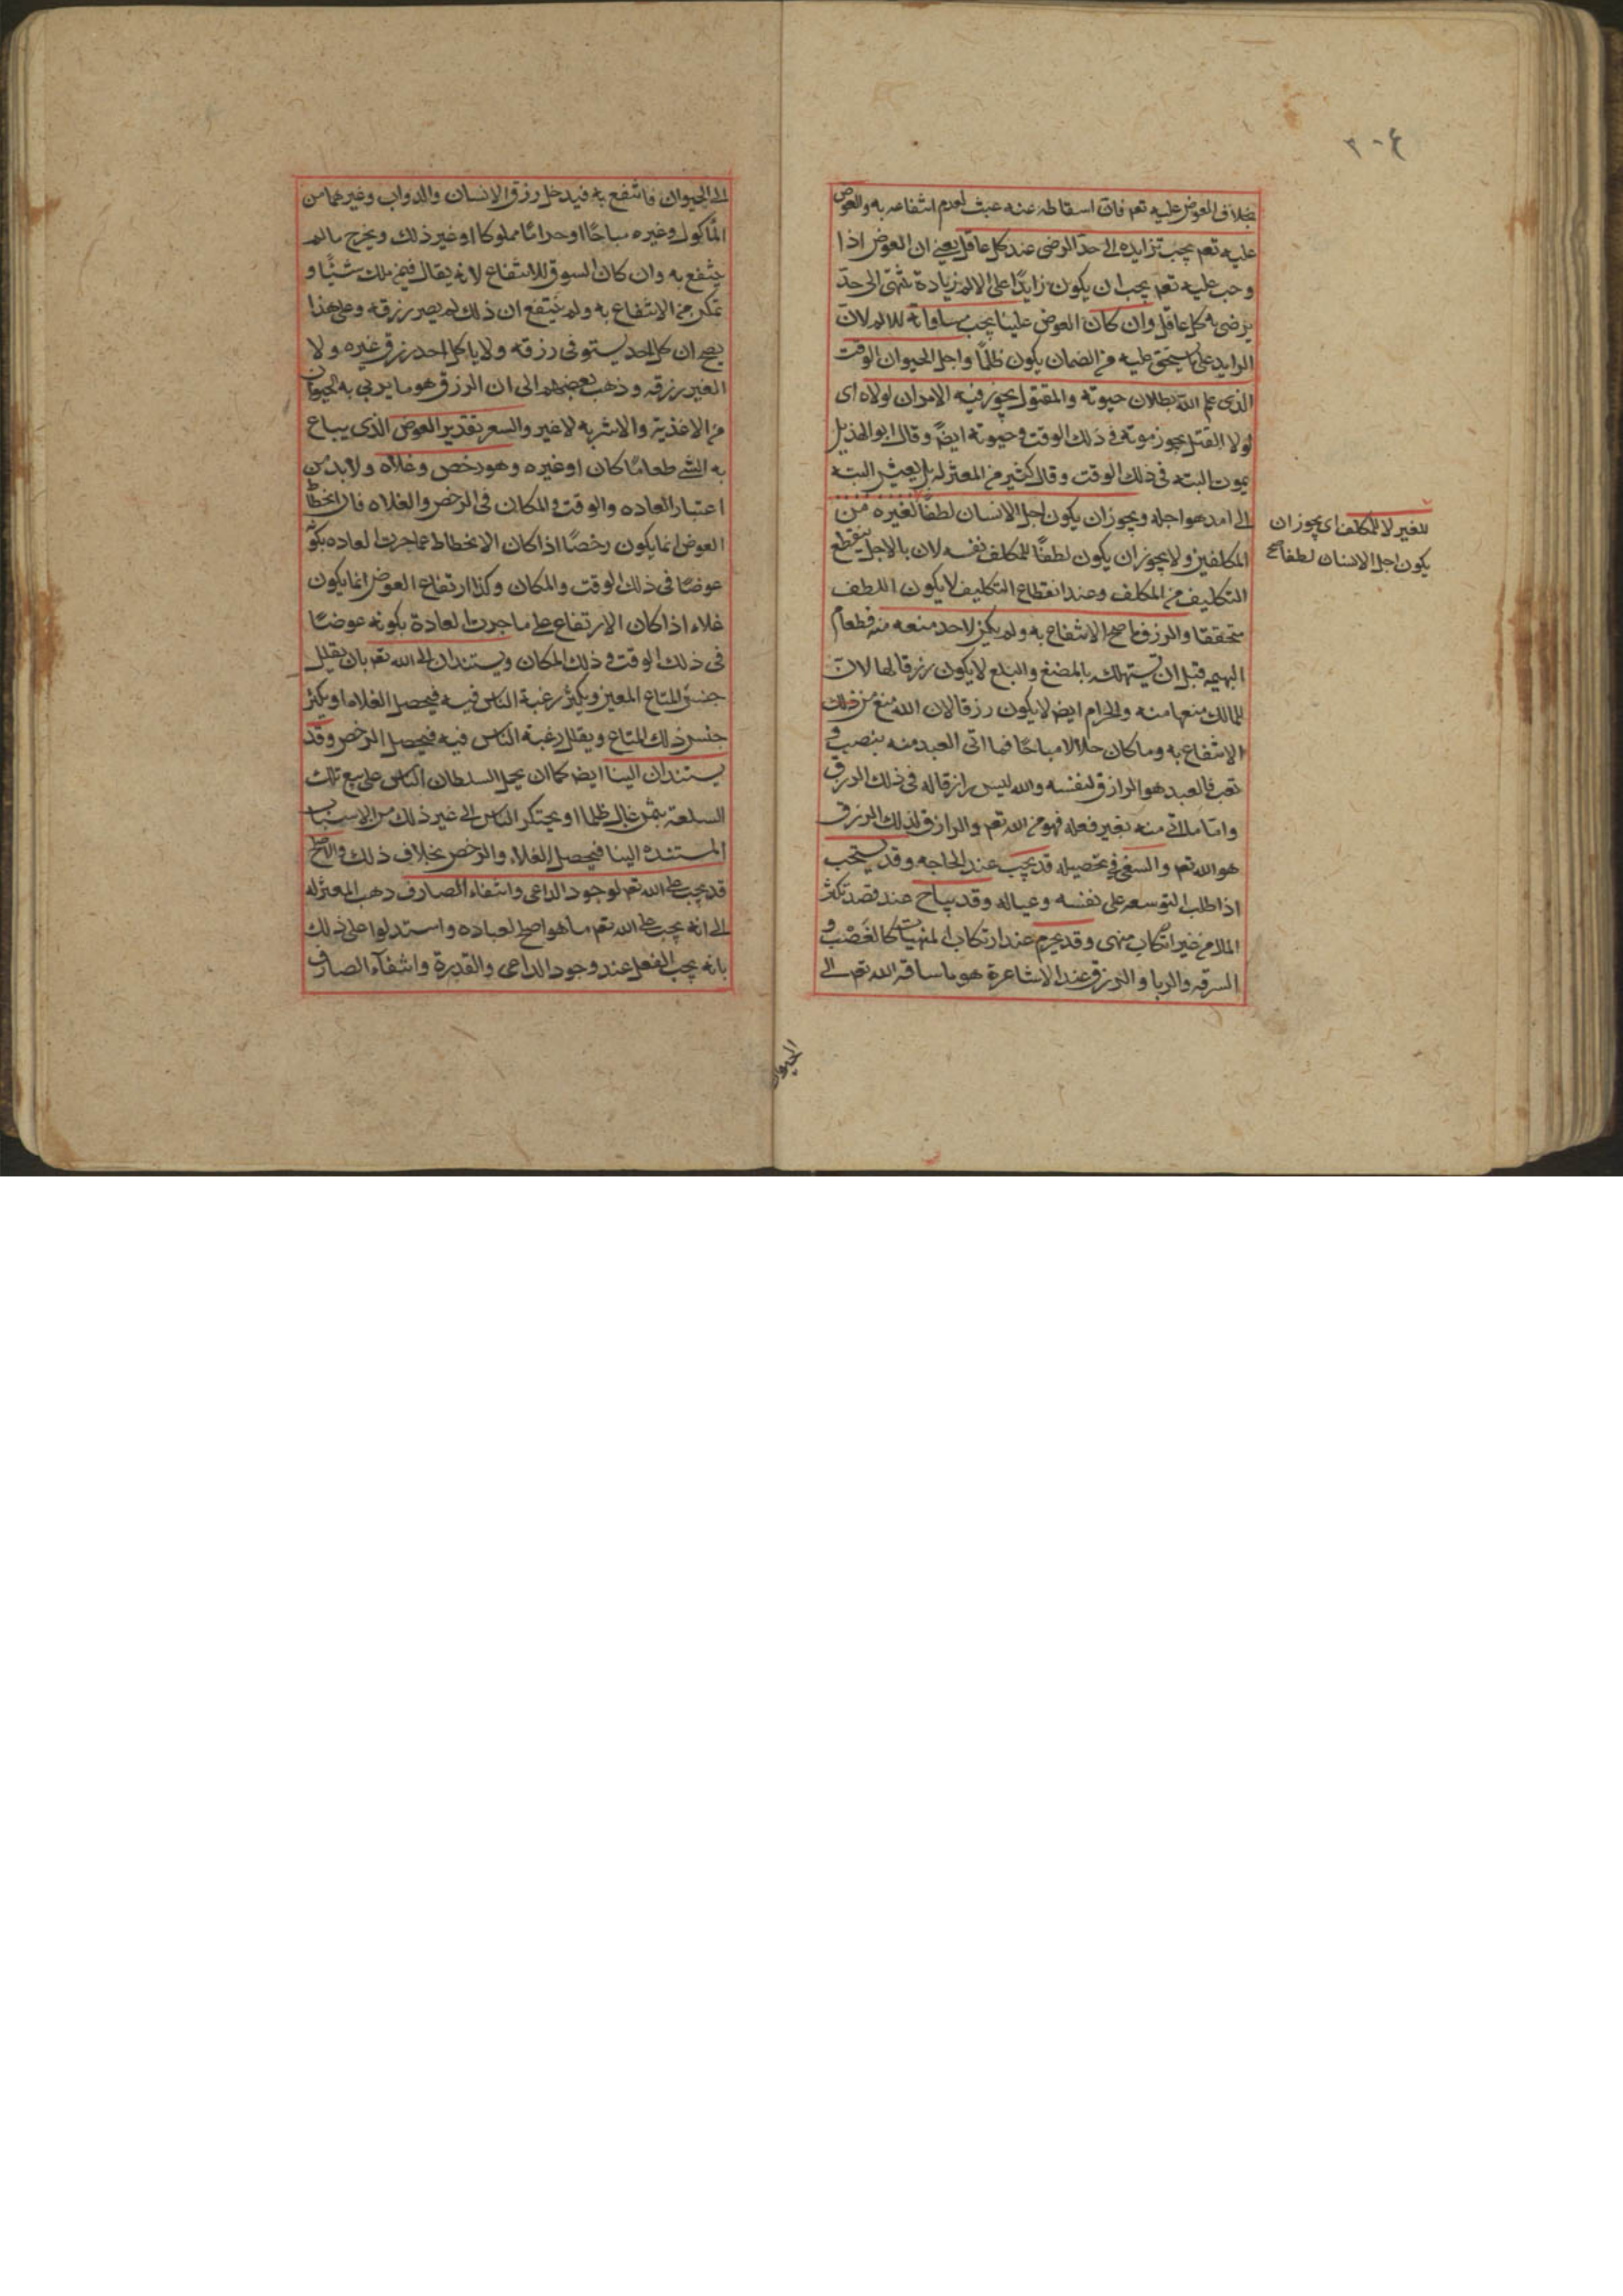 ٣٠٤
بخلاف العوض عليه تعم فان اسقاطه عنه عبث لعدم انتفاعه به والعوض
عليه تعم يجب تزايده الى حد الرضى عند كل عاقل يعنى ان العوض اذا
وجب عليه تعم يجب ان يكون زايدًا على الالم زيادة تنتهى الى حدّ
يرضى به كل عاقل وان كان العوض علينا يجب مساواته للالم لان
الزايد على ما يستحق عليه من الضمان يكون ظلمًا واجل الحيوان الوقت
الذى علم الله بطلان حيوته والمقتول يجوز فيه الامران لولاه اى
لولا القتل يجوز موته فى ذلك الوقت وحيوته ايضً وقال ابو الهذيل
يموت البته فى ذلك الوقت وقال كثير من المعتزله بل يعيش البته
الى امد هو اجله ويجوز ان يكون اجل الانسان لطفًا لغيره من
المكلفين ولا يجوز ان يكون لطفًا للمكلف نفسه لان بالاجل ينقطع
التكليف من المكلف وعند انقطاع التكليف لا يكون اللطف
متحققا والرزق ما صح الانتفاع به ولم يكن لاحد منعه منه فطعام
البهيمه قبل ان يستهلك بالمضغ والبلع لا يكون رزقا لها لان
للمالك منعها منه والحرام ايض لا يكون رزقا لان الله منع من ذلك
الانتفاع به وما كان حلالا مباحًا فما اتى العبد منه بنصب فى
تعب فالعبد هو الرازق لنفسه والله ليس رازقا له فى ذلك الرزق
واما ما اتى منه بغير فعله فهو من الله تعم والرازق لذلك الرزق
هو الله تعم والسعى فى تحصيله قد يجب عند الحاجه وقد يستحب
اذا طلب التوسعه على نفسه وعياله وقد يباح عند قصد تكثر
المال من غير ارتكاب منهى وقد يحرم عند ارتكاب المنهيات كالغَصْب و
السرقه والربا والرزق عند الاشاعرة هو ما ساقه الله تعم الى
للغير لا للمكلف اى يجوز ان
يكون اجل الانسان لطفا صح
الحيوان
الى الحيوان فانتفع به فيدخل رزق الانسان والدواب وغيرهما من
المأكول وغيره مباحًا او حرامًا مملوكا او غير ذلك ويخرج ما لم
ينتفع به وان كان السوق للانتفاع لانه يقال فيمن ملك شيئًا و
تمكن من الانتفاع به ولم ينتفع ان ذلك لم يصر رزقه وعلى هذا
يصح ان كل احد يستوفى رزقه ولا ياكل احد رزق غيره ولا
الغير رزقه وذهب بعضهم الى ان الرزق هو ما يربى به الحيوان
من الاغذية والاشربه لا غير والسعر تقدير العوض الذى يباع
به الشئ طعامًا كان او غيره وهو رخص وغلاء ولا بد من
اعتبار العاده والوقت والمكان فى الرخص والغلاء فان انحطاط
العوض انما يكون رخصًا اذا كان الانحطاط عما جرت العاده بكونه
عوضًا فى ذلك الوقت والمكان وكذا ارتفاع العوض انما يكون
غلاء اذا كان الارتفاع على ما جرت العادة بكونه عوضًا
فى ذلك الوقت وذلك المكان ويستندان الى الله تعم بان يقلل
جنس المتاع المعين ويكثر رغبة الناس فيه فيحصل الغلاء او يكثر
جنس ذلك المتاع ويقلل رغبة الناس فيه فيحصل الرخص وقد
يستندان الينا ايض كما ان يحمل السلطان الناس على بيع تلك
السلعة بثمن غال ظلما او يحتكر الناس الى غير ذلك من الاسباب
المستنده الينا فيحصل الغلاء والرخص بخلاف ذلك والاصلح
قد يجب على الله تعم لوجود الداعى وانتفاء الصارف ذهب المعتزله
الى انه يجب على الله تعم ما هو اصلح لعباده واستدلوا على ذلك
بانه يجب الفعل عند وجود الداعى والقدرة وانتفآء الصارف